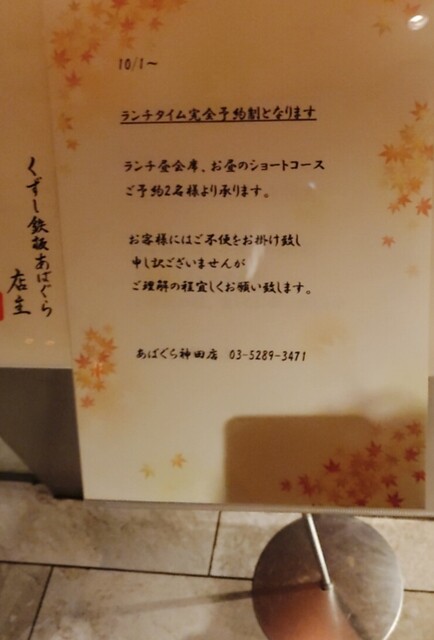 10/1～
ランチタイム完全予約割となります
ランチ昼会席、お昼のショートコース
ご予約2名様より承ります。
お客様にはご不便をお掛け致し
申し訳ございませんが
ご理解の程宜しくお願い致します。
あばぐら神田店 03-5289-3471
くずし鉄板あばぐら
店主